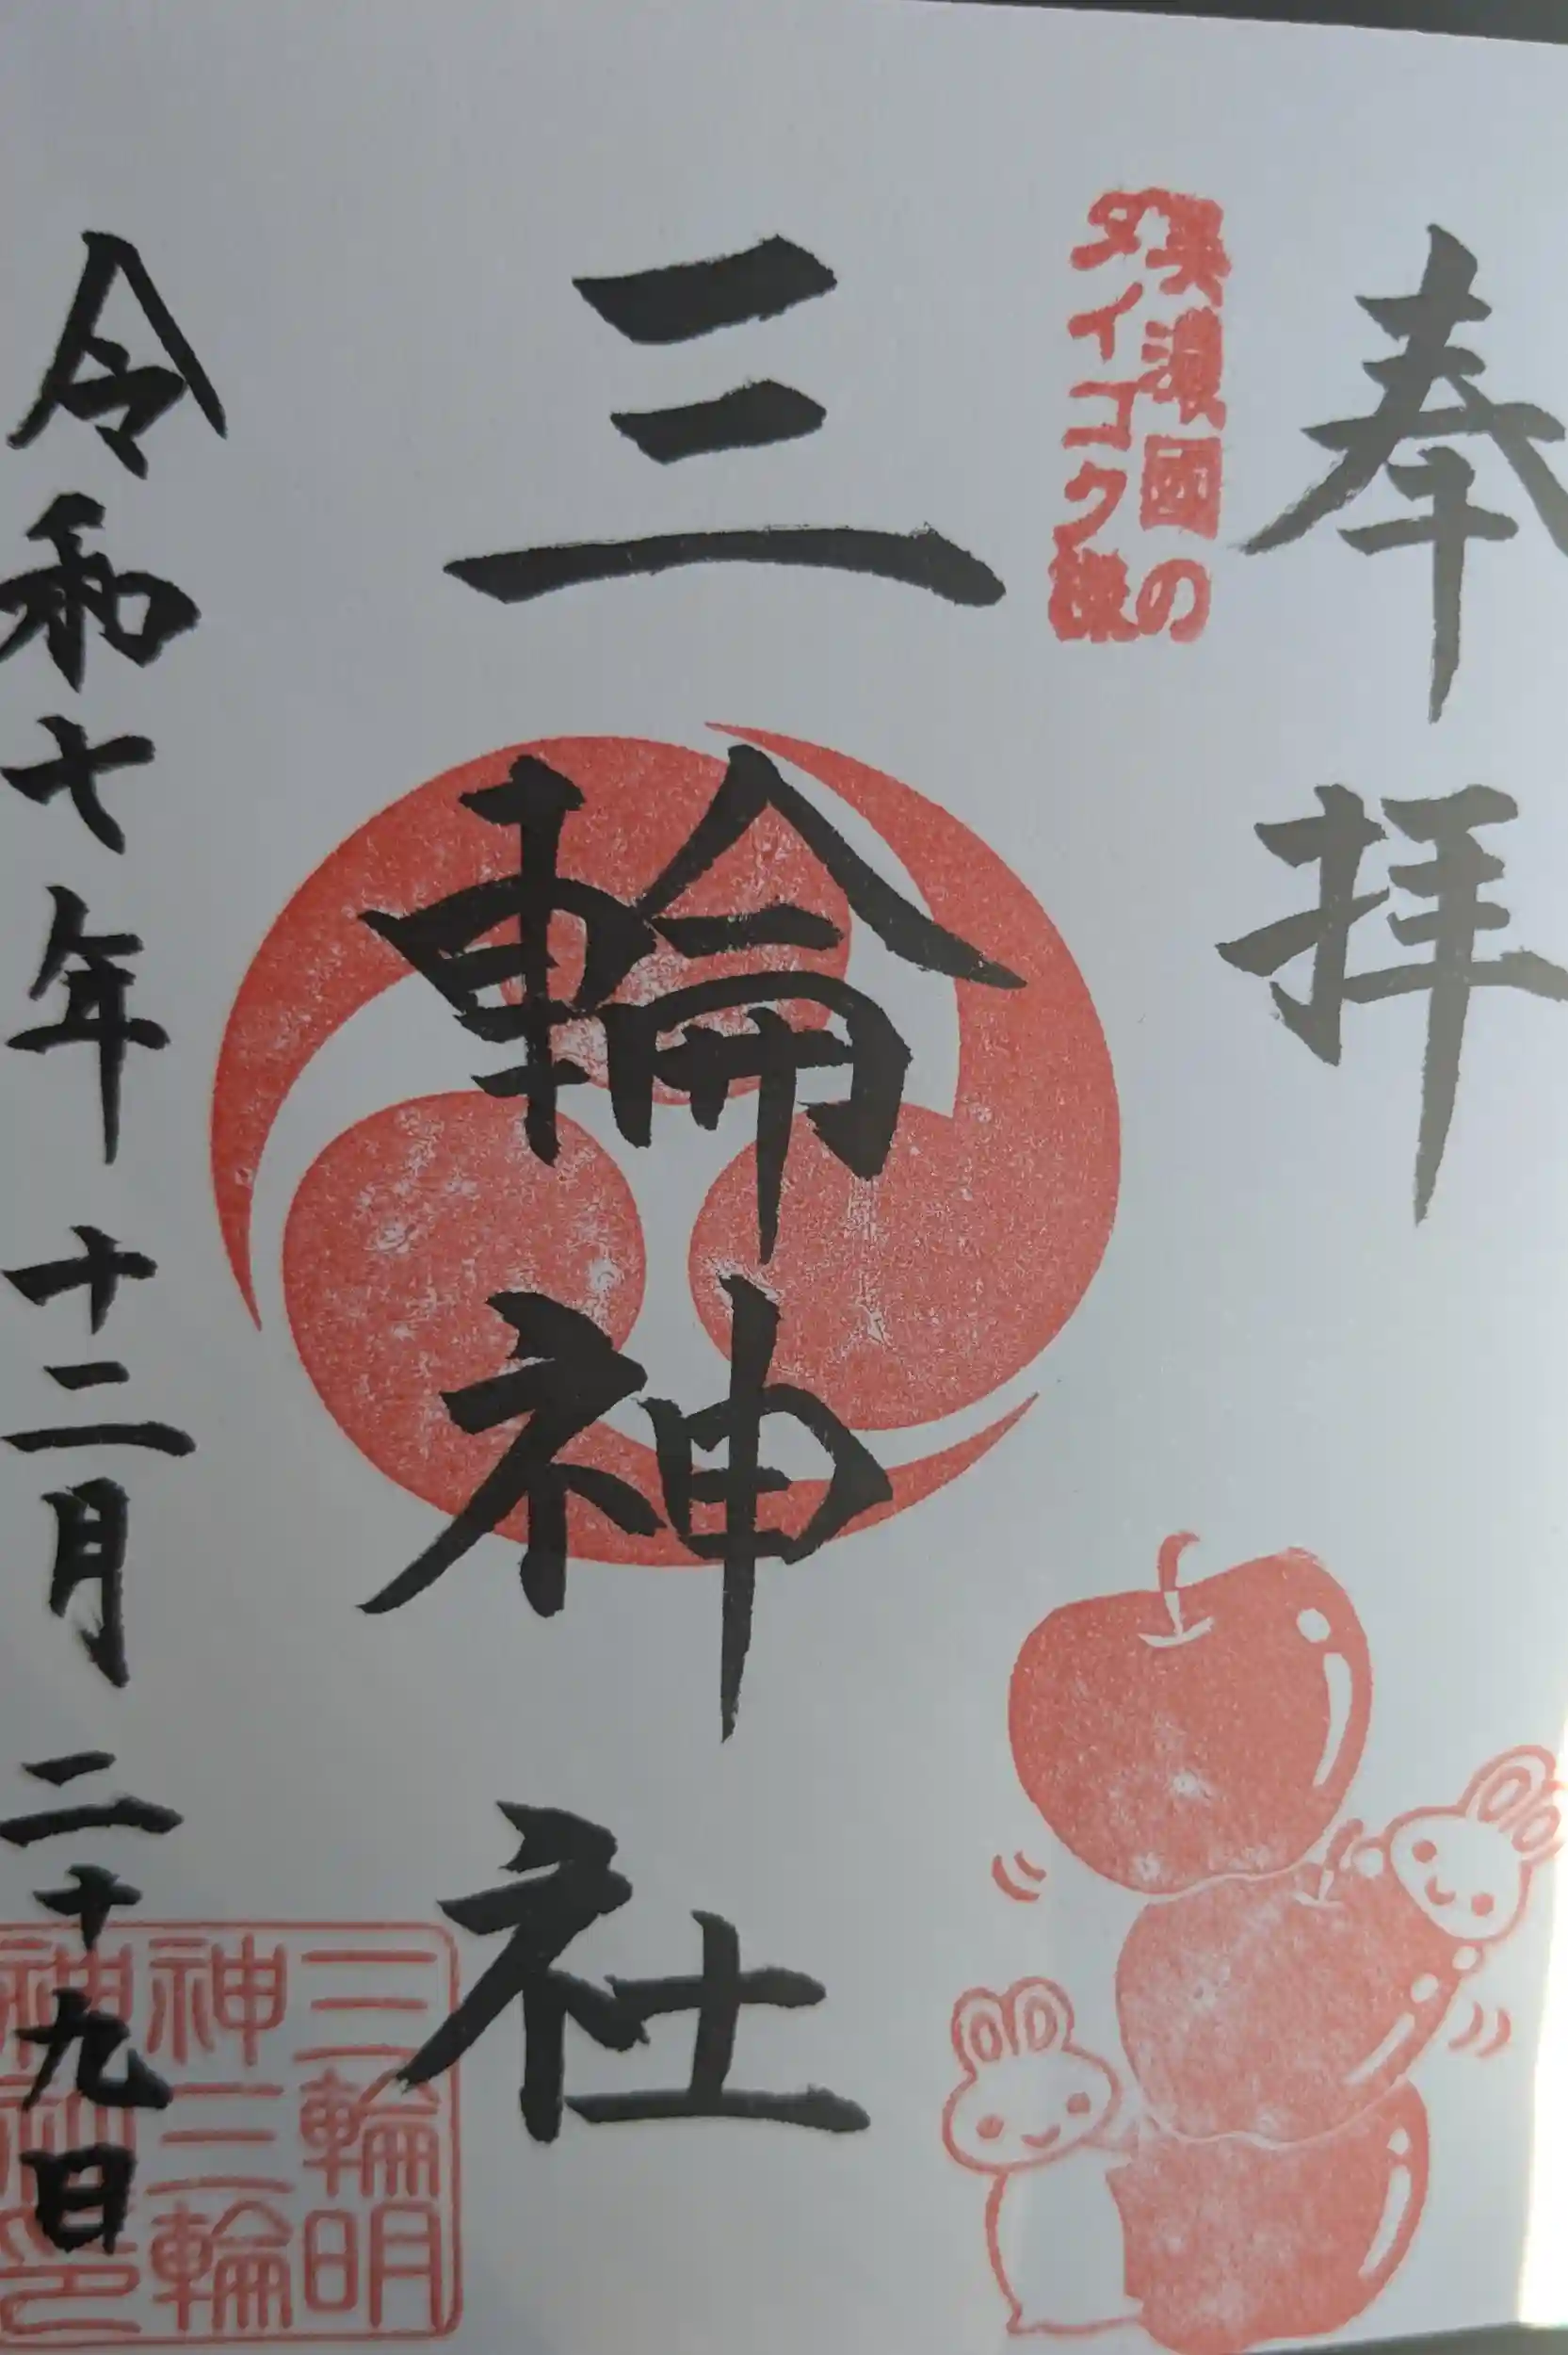 奉拝
美濃國の
ダイコク様
三輪神社
三輪明
神三輪
令和七年 十二月 二十九日